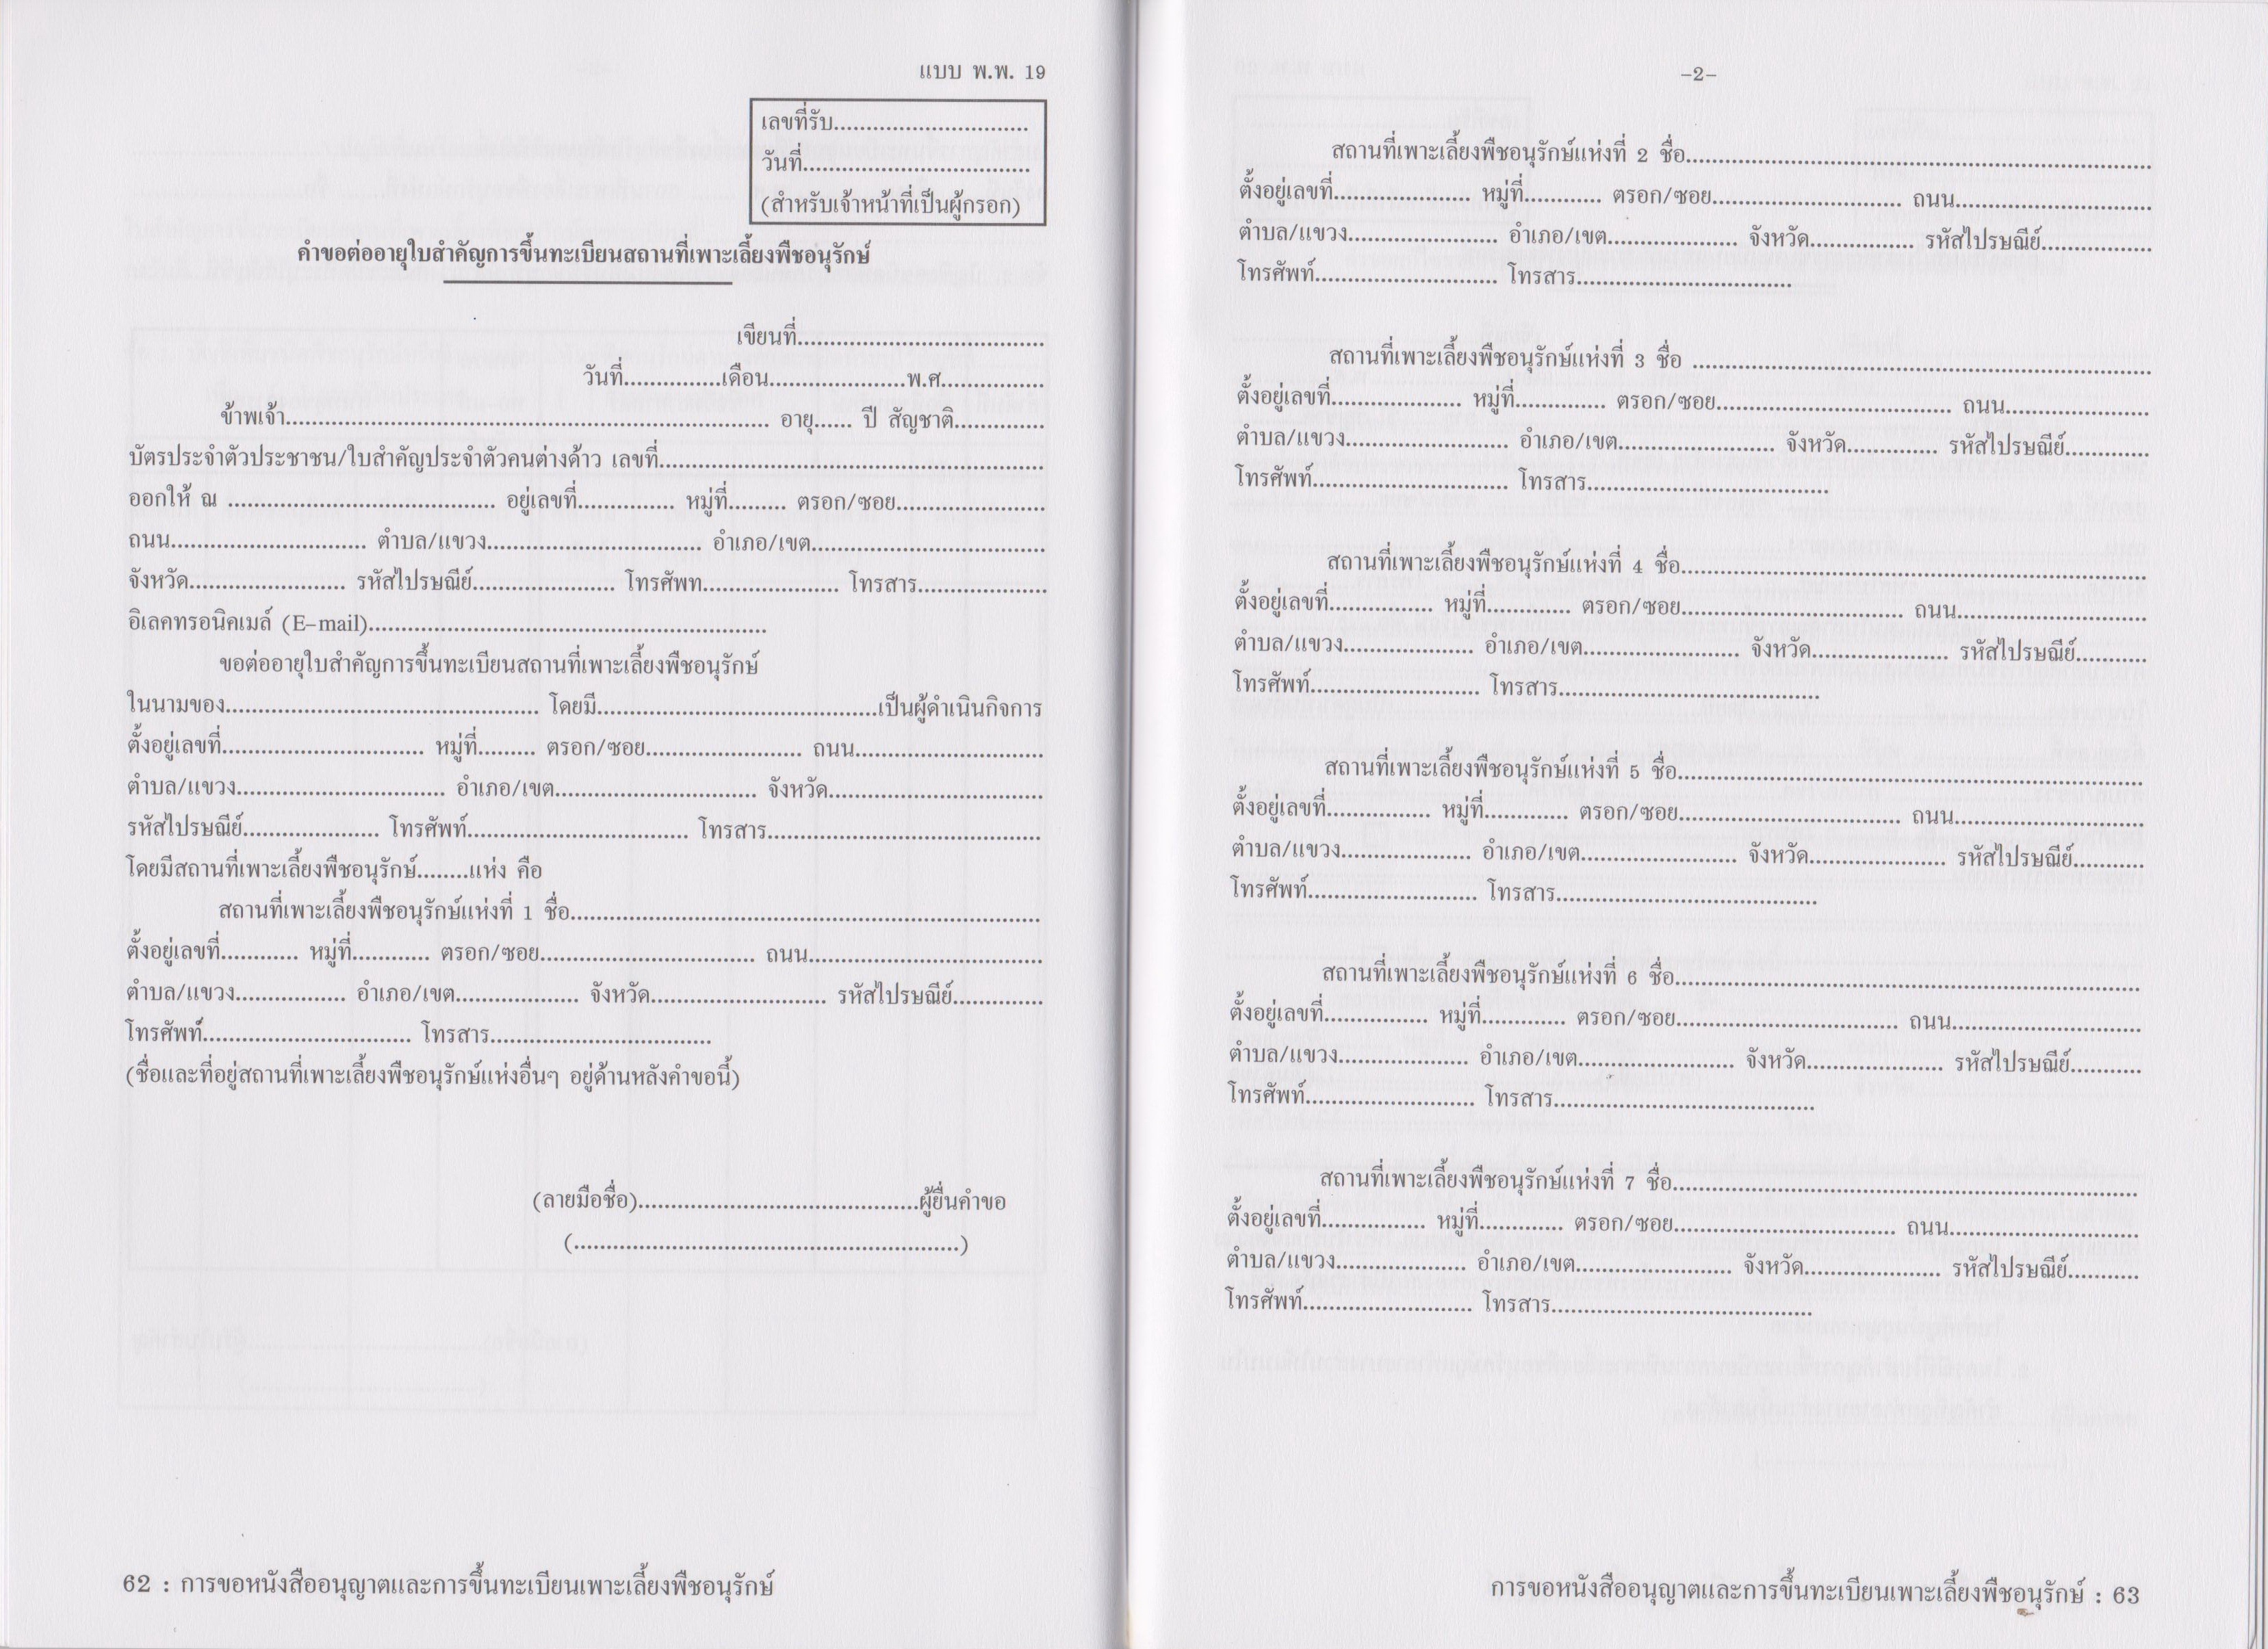 แบบ พ.พ. 19
เลขที่รับ..............................
วันที่...................................
(สำหรับเจ้าหน้าที่เป็นผู้กรอก)
คำขอต่ออายุใบสำคัญการขึ้นทะเบียนสถานที่เพาะเลี้ยงพืชอนุรักษ์
เขียนที่......................................
วันที่...............เดือน.....................พ.ศ................
ข้าพเจ้า........................................................................... อายุ...... ปี สัญชาติ..............
บัตรประจำตัวประชาชน/ใบสำคัญประจำตัวคนต่างด้าว เลขที่...........................................................
ออกให้ ณ ......................................... อยู่เลขที่............... หมู่ที่......... ตรอก/ซอย.......................
ถนน.............................. ตำบล/แขวง................................. อำเภอ/เขต....................................
จังหวัด........................ รหัสไปรษณีย์...................... โทรศัพท......................... โทรสาร....................
อิเลคทรอนิคเมล์ (E-mail).............................................................
ขอต่ออายุใบสำคัญการขึ้นทะเบียนสถานที่เพาะเลี้ยงพืชอนุรักษ์
ในนามของ................................................ โดยมี...........................................เป็นผู้ดำเนินกิจการ
ตั้งอยู่เลขที่............................... หมู่ที่......... ตรอก/ซอย........................ ถนน.............................
ตำบล/แขวง................................ อำเภอ/เขต............................... จังหวัด.................................
รหัสไปรษณีย์..................... โทรศัพท์.................................. โทรสาร..........................................
โดยมีสถานที่เพาะเลี้ยงพืชอนุรักษ์........แห่ง คือ
สถานที่เพาะเลี้ยงพืชอนุรักษ์แห่งที่ 1 ชื่อ........................................................................
ตั้งอยู่เลขที่............ หมู่ที่............ ตรอก/ซอย................................. ถนน....................................
ตำบล/แขวง................. อำเภอ/เขต................... จังหวัด........................... รหัสไปรษณีย์..............
โทรศัพท์................................ โทรสาร..................................
(ชื่อและที่อยู่สถานที่เพาะเลี้ยงพืชอนุรักษ์แห่งอื่นๆ อยู่ด้านหลังคำขอนี้)
(ลายมือชื่อ)...........................................ผู้ยื่นคำขอ
(...........................................................)
62 : การขอหนังสืออนุญาตและการขึ้นทะเบียนเพาะเลี้ยงพืชอนุรักษ์
-2-
สถานที่เพาะเลี้ยงพืชอนุรักษ์แห่งที่ 2 ชื่อ.......................................................................
ตั้งอยู่เลขที่..................... หมู่ที่............ ตรอก/ซอย............................. ถนน..............................
ตำบล/แขวง....................... อำเภอ/เขต.................... จังหวัด................ รหัสไปรษณีย์.................
โทรศัพท์............................ โทรสาร.................................
สถานที่เพาะเลี้ยงพืชอนุรักษ์แห่งที่ 3 ชื่อ ......................................................................
ตั้งอยู่เลขที่.................... หมู่ที่.............. ตรอก/ซอย.................................... ถนน......................
ตำบล/แขวง......................... อำเภอ/เขต........................ จังหวัด.............. รหัสไปรษณีย์.............
โทรศัพท์.............................. โทรสาร.....................................
สถานที่เพาะเลี้ยงพืชอนุรักษ์แห่งที่ 4 ชื่อ.......................................................................
ตั้งอยู่เลขที่................ หมู่ที่............. ตรอก/ซอย.................................. ถนน.............................
ตำบล/แขวง.................... อำเภอ/เขต........................ จังหวัด..................... รหัสไปรษณีย์...........
โทรศัพท์.......................... โทรสาร........................................
สถานที่เพาะเลี้ยงพืชอนุรักษ์แห่งที่ 5 ชื่อ.......................................................................
ตั้งอยู่เลขที่................ หมู่ที่............. ตรอก/ซอย.................................. ถนน.............................
ตำบล/แขวง.................... อำเภอ/เขต........................ จังหวัด..................... รหัสไปรษณีย์...........
โทรศัพท์.......................... โทรสาร........................................
สถานที่เพาะเลี้ยงพืชอนุรักษ์แห่งที่ 6 ชื่อ.......................................................................
ตั้งอยู่เลขที่................ หมู่ที่............. ตรอก/ซอย.................................. ถนน.............................
ตำบล/แขวง.................... อำเภอ/เขต........................ จังหวัด..................... รหัสไปรษณีย์...........
โทรศัพท์.......................... โทรสาร........................................
สถานที่เพาะเลี้ยงพืชอนุรักษ์แห่งที่ 7 ชื่อ.......................................................................
ตั้งอยู่เลขที่................ หมู่ที่............. ตรอก/ซอย.................................. ถนน.............................
ตำบล/แขวง.................... อำเภอ/เขต........................ จังหวัด..................... รหัสไปรษณีย์...........
โทรศัพท์.......................... โทรสาร........................................
การขอหนังสืออนุญาตและการขึ้นทะเบียนเพาะเลี้ยงพืชอนุรักษ์ : 63